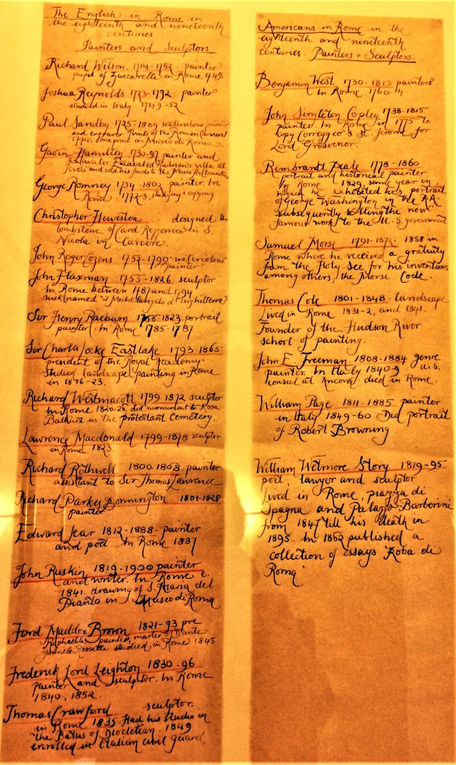 The English in Rome in
the eighteenth and nineteenth
centuries
Painters and Sculptors
Richard Wilson 1714-1782 - painter
pupil of Zuccarelli in Rome 1749.
Joshua Reynolds 1723-1792 painter
studied in Italy 1749-52
Paul Sandby 1725-1809 watercolour painter
and engraver Prints of the Roman Carnival
in Museo di Roma
Gavin Hamilton 1730-97 painter and
excavator Excavated Hadrian's villa at
Tivoli and sold his finds to the
George Romney 1734-1802 painter. In
Rome 1772-3, studying & copying
Christopher Hewetson designed the
tombstone of Card Rezzonico in S.
Nicola in Carcere
John Rogerson 1752-1799 watercolour
painter
John Flaxman 1755-1826 sculptor
In Rome between 1787 and 1794
nicknamed "il Michelangelo di Inghilterra"
Sir Henry Raeburn 1756-1823 portrait
painter. In Rome 1785-1787
Sir Charles Locke Eastlake 1793-1865
president of the Royal Academy.
Studied landscape painting in Rome
in 1816-23.
Richard Westmacott 1799-1872 sculptor
In Rome 1820-26, did monument to Rosa
Bathurst in the protestant Cemetery.
Lawrence Macdonald 1799-1878 sculptor
in Rome 1823
Richard Rothwell 1800-1868 painter
assistant to Sir Thomas Lawrence
Richard Parkes Bonnington 1801-1828
painter
Edward Lear 1812-1888 - painter
and poet In Rome 1837
John Ruskin 1819-1900 painter
and writer. In Rome c.
1841. drawing of S. Maria del
Pianto in Museo di Roma
Ford Maddox Brown 1821-93 pre
Raphaelite painter, master of Dante
Gabriele Rossetti studied in Rome 1845
Frederick Lord Leighton 1830-96
Painter and sculptor. In Rome
1840, 1852
Thomas Crawford sculptor.
in Rome 1835. Had his studio in
the Baths of Diocletian. 1849
enrolled in Italian civil guard
Americans in Rome in the
eighteenth and nineteenth
centuries. Painters & Sculptors.
Benjamin West 1730-1813 painter
In Rome 1760
John Singleton Copley 1738-1815
Painter. In Rome in 1775 to
copy Correggio's St Jerome for
Lord Grosvenor.
Rembrandt Peale 1778-1860
portrait and historical painter
In Rome 1829, same year in
which he exhibited his portrait
of George Washington in the
subsequently selling the now
famous work to the U.S. government
Samuel Morse 1791-1872. 1858 in
Rome where he received a gratuity
from the Holy See for his inventions
among others, the Morse Code.
Thomas Cole 1801-1848. landscape
Lived in Rome 1831-2, and 1841.
Founder of the Hudson River
school of painting.
John E. Freeman 1808-1884 genre
painter. In Italy 1840-9 U.S.
consul at Ancona, died in Rome.
William Page 1811-1885 painter
in Italy 1849-60 Did portrait
of Robert Browning
William Wetmore Story 1819-95
poet, lawyer and sculptor
Lived in Rome, piazza di
Spagna and Palazzo Barberini
from 1847 till his death in
1895. In 1862 published a
collection of essays Roba di
Roma